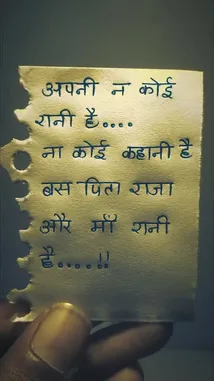 अपनी न कोई
रानी है....
ना कोई कहानी है
बस पिता राजा
और माँ रानी
है.....!!